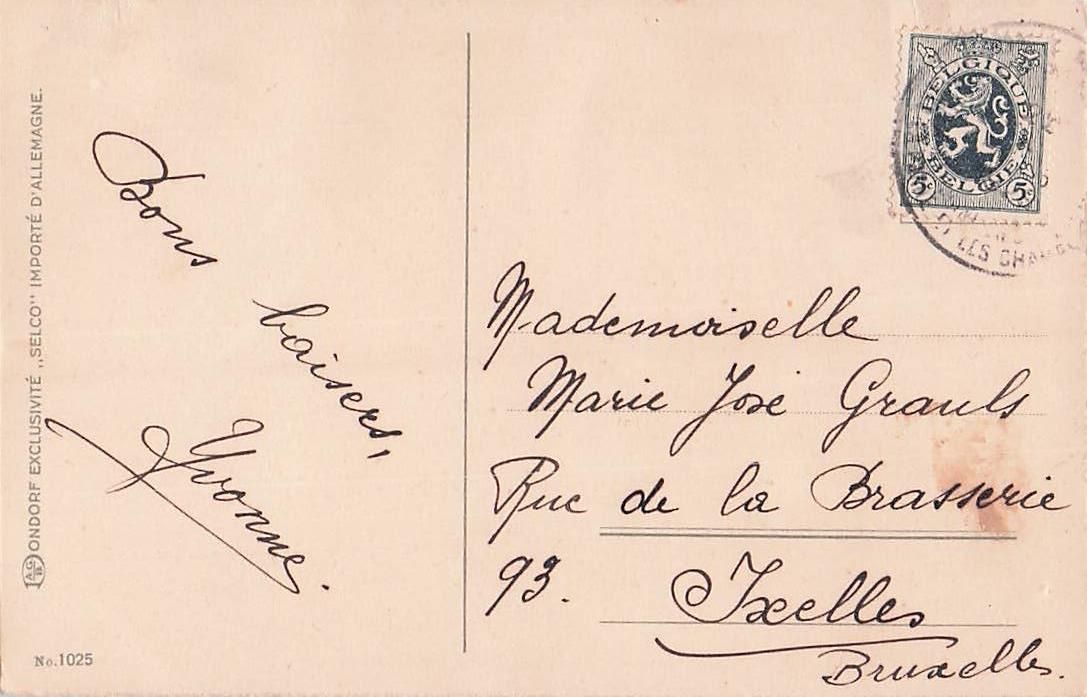 ONDORF EXCLUSIVITÉ „SELCO" IMPORTÉ D'ALLEMAGNE.
No. 1025
Bons
baisers,
Yvonne.
BELGIQUE
BELGIE
5c 5c
LES
Mademoiselle
Marie José Grauls
Rue de la Brasserie
93.
Ixelles
Bruxelles.